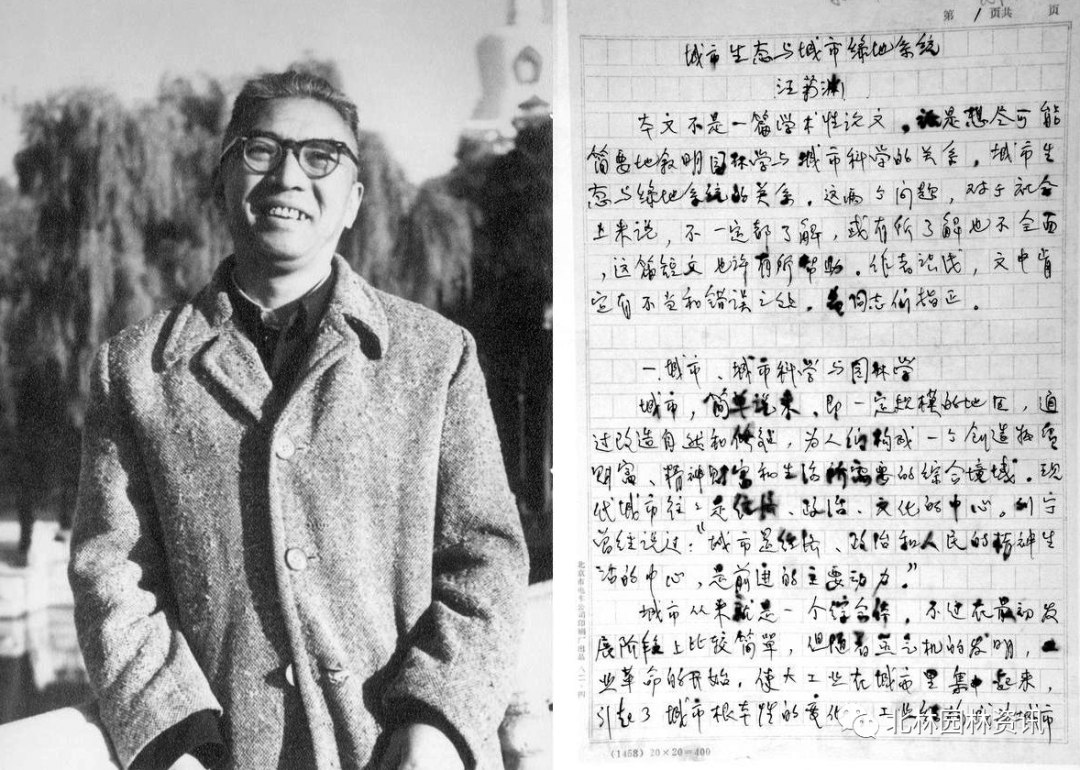 第1页共 页
城市生态与城市绿地系统
汪菊渊
本文不是一篇学术性论文，是想尽可能
简要地叙明园林学与城市科学的关系，城市生
态与绿地系统的关系。这两个问题，对于社会
上来说，不一定都了解，或有所了解也不全面
，这篇短文也许有所帮助。作者浅识，文中肯
定有不当和错误之处，同志们指正。
一、城市、城市科学与园林学
城市，简单说来，即一定规模的地区，通
过改造自然和修建，为人们构成一个创造物质
财富、精神财富和生活所需要的综合境域。现
代城市往往是经济、政治、文化的中心。列宁
曾经说过："城市是经济、政治和人民的精神生
活的中心，是前进的主要动力。"
城市从来就是一个综合体，不过在最初发
展阶段上比较简单，但随着蒸汽机的发明，工
业革命的开始，使大工业在城市里集中起来，
引起了城市根本性的变化。工业 城市
北京市电车公司印刷厂出品
(1458) 20×20=400
北林园林资讯